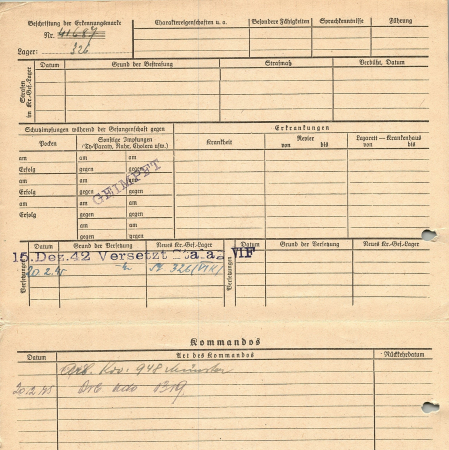 Beschriftung der Erkennungsmarke
Nr. 41687
Lager: 326
Charaktereigenschaften u. a.
Besondere Fähigkeiten
Sprachkenntnisse
Führung
Strafen im Kr.-Gef.-Lager
Datum
Grund der Bestrafung
Strafmaß
Verbüßt, Datum
Schutzimpfungen während der Gefangenschaft gegen
Erkrankungen
Pocken
Sonstige Impfungen
(Ty.-Paraty., Ruhr, Cholera usw.)
Krankheit
Revier
von bis
Lazarett — Krankenhaus
von bis
am am am
Erfolg gegen gegen
am am am
Erfolg gegen gegen
am am am
Erfolg gegen gegen
am am
gegen gegen
GEIMPFT
Versetzungen
Datum
Grund der Versetzung
Neues Kr.-Gef.-Lager
Versetzungen
Datum
Grund der Versetzung
Neues Kr.-Gef.-Lager
15. Dez. 42 Versetzt Stalag VI F
20.2.45 St. 326 (VI K)
Kommandos
Datum
Art des Kommandos
Rückkehrdatum
Arb. Kdo. 948 Münster
20.2.45 Arb Kdo 1319